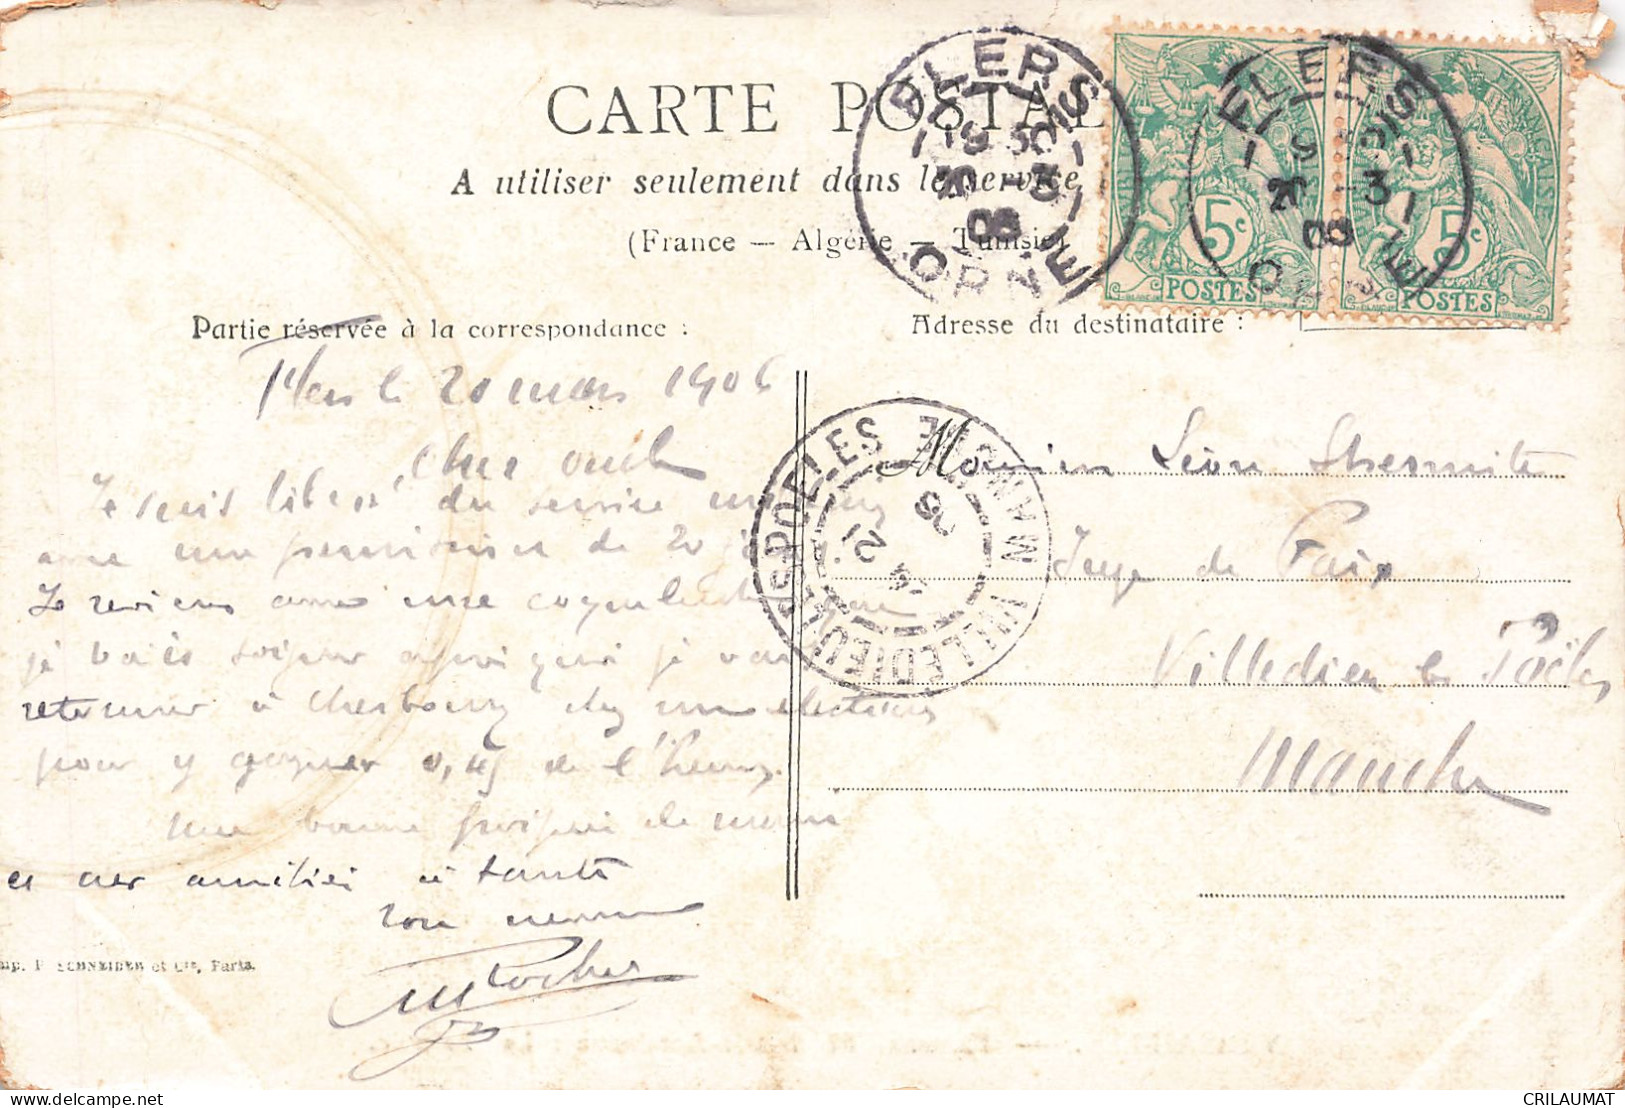 CARTE POSTALE
A utiliser seulement dans le service
(France — Algérie — Tunisie)
FLERS
ORNE
FLERS
ORNE
5c
POSTES
5c
POSTES
Partie réservée à la correspondance :
Adresse du destinataire :
Flers le 20 mars 1906
Cher oncle
Je suis libéré du service
avec une permission de 20
Je reviens avec une
je vais soigner après quoi je vais
retourner à Cherbourg chez un électricien
pour y gagner 0,45 de l'heure.
Une bonne poignée de main
et mes amitiés à tante
ton neveu
Monsieur Léon Lhermitte
Juge de Paix
Villedieu les Poëles
Manche
VILLEDIEU-LES-POELES MANCHE
21
06
Imp. P. SCHNEIDER et Cie, Paris.
CRILAUMAT
delcampe.net